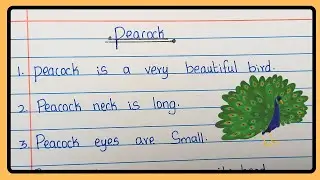 Peacock
1. Peacock is a very beautiful bird.
2. Peacock neck is long.
3. Peacock eyes are Small.